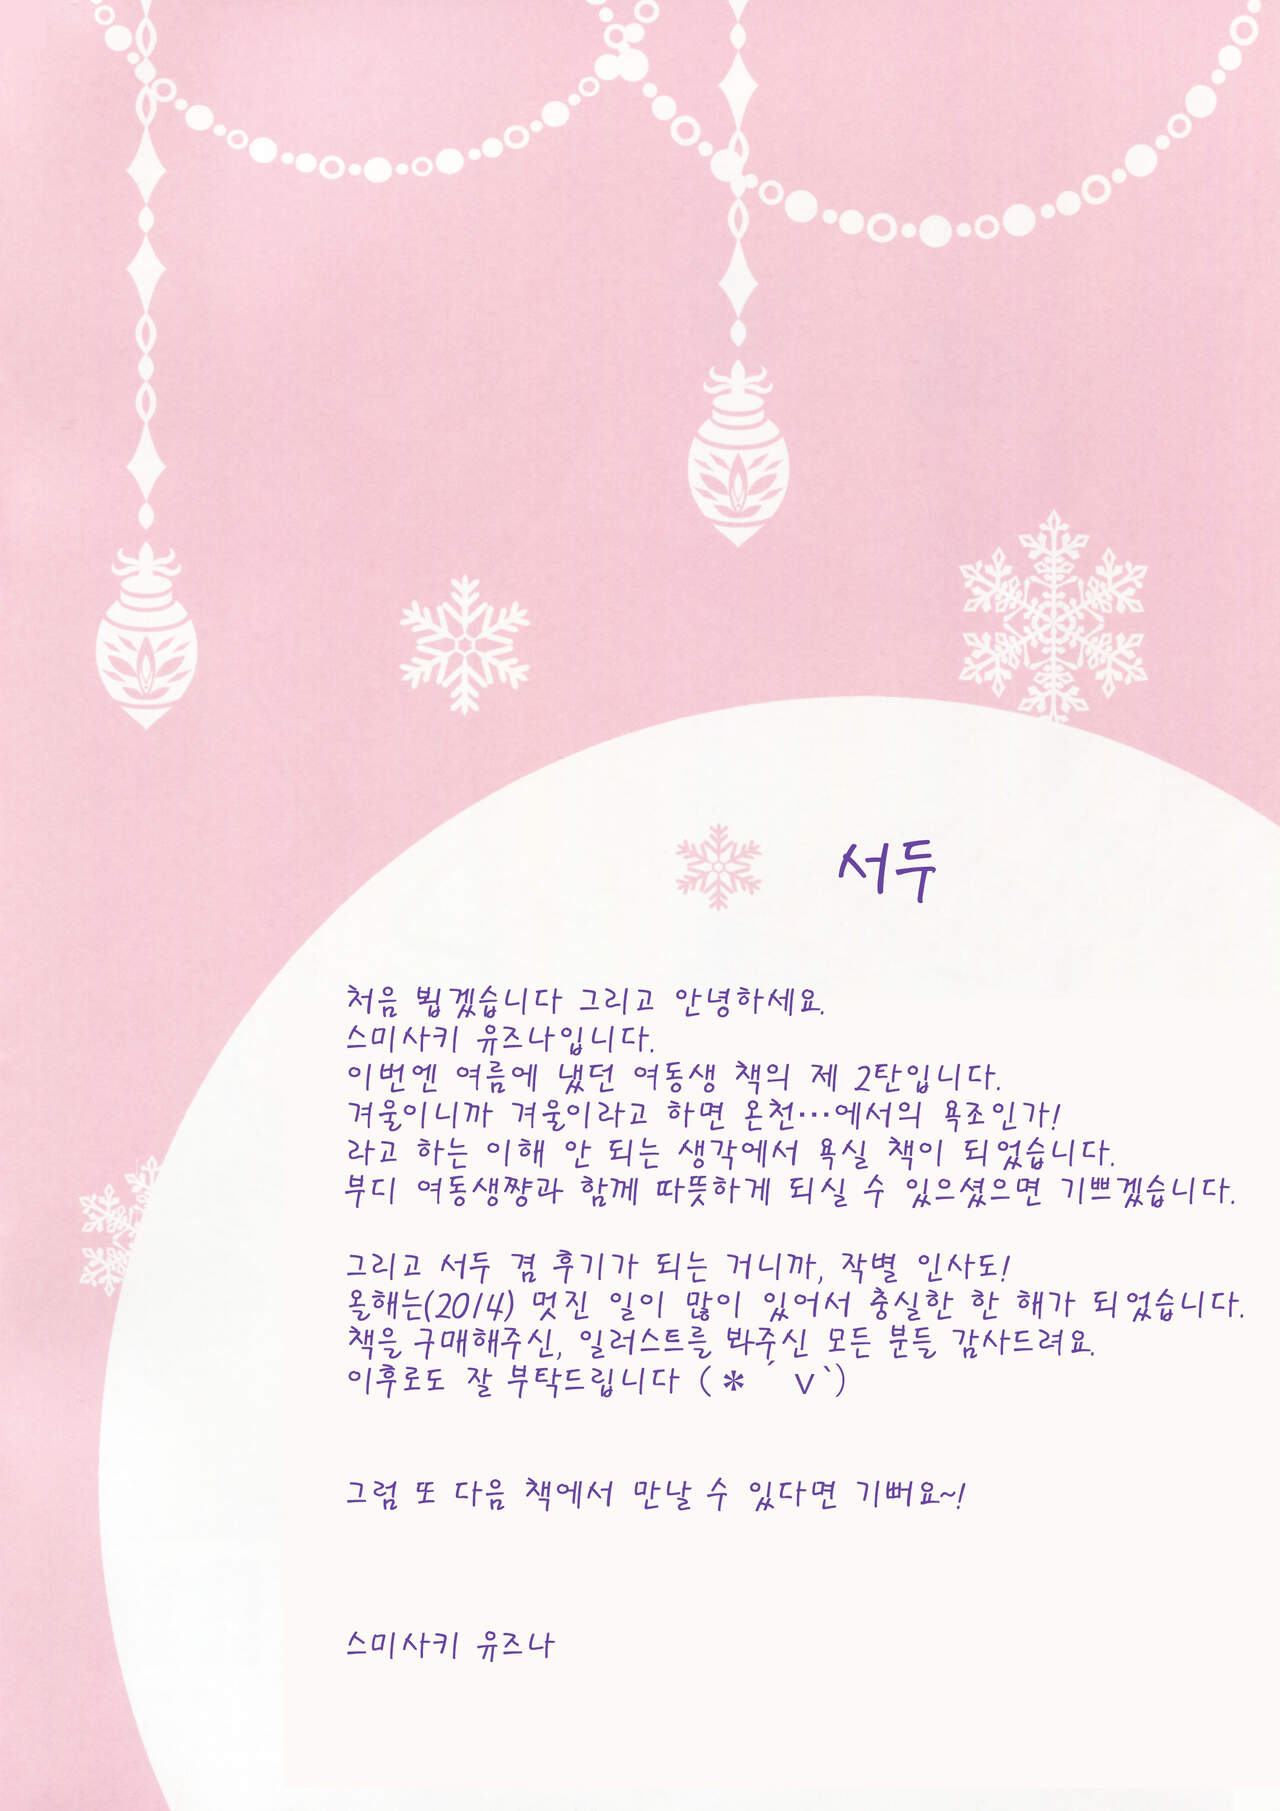 서두
처음 뵙겠습니다 그리고 안녕하세요.
스미사키 유즈나입니다.
이번엔 여름에 냈던 여동생 책의 제 2탄입니다.
겨울이니까 겨울이라고 하면 온천···에서의 욕조인가!
라고 하는 이해 안 되는 생각에서 욕실 책이 되었습니다.
부디 여동생쨩과 함께 따뜻하게 되실 수 있으셨으면 기쁘겠습니다.
그리고 서두 겸 후기가 되는 거니까, 작별 인사도!
올해는(2014) 멋진 일이 많이 있어서 충실한 한 해가 되었습니다.
책을 구매해주신, 일러스트를 봐주신 모든 분들 감사드려요.
이후로도 잘 부탁드립니다 (＊´ ∨`)
그럼 또 다음 책에서 만날 수 있다면 기뻐요~!
스미사키 유즈나